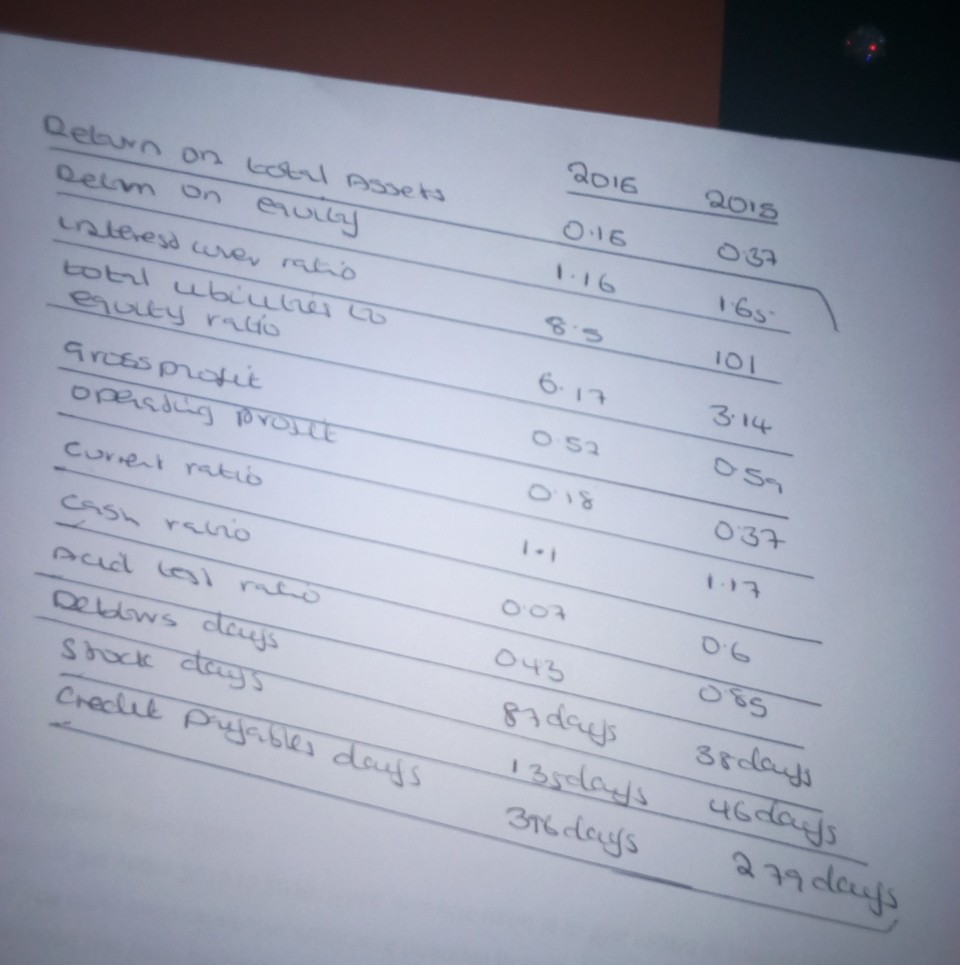 2016 2015
Return on total Assets 0.16 0.37
Return on equity 1.16 1.65
interest cover ratio 8.5 101
total liabilities to
equity ratio 6.17 3.14
Gross profit 0.52 0.59
operating profit 0.18 0.37
Current ratio 1.1 1.17
Cash ratio 0.07 0.6
Acid test ratio 0.43 0.85
Debtors days 87 days 38 days
Stock days 135 days 46 days
Credit payables days 396 days 279 days